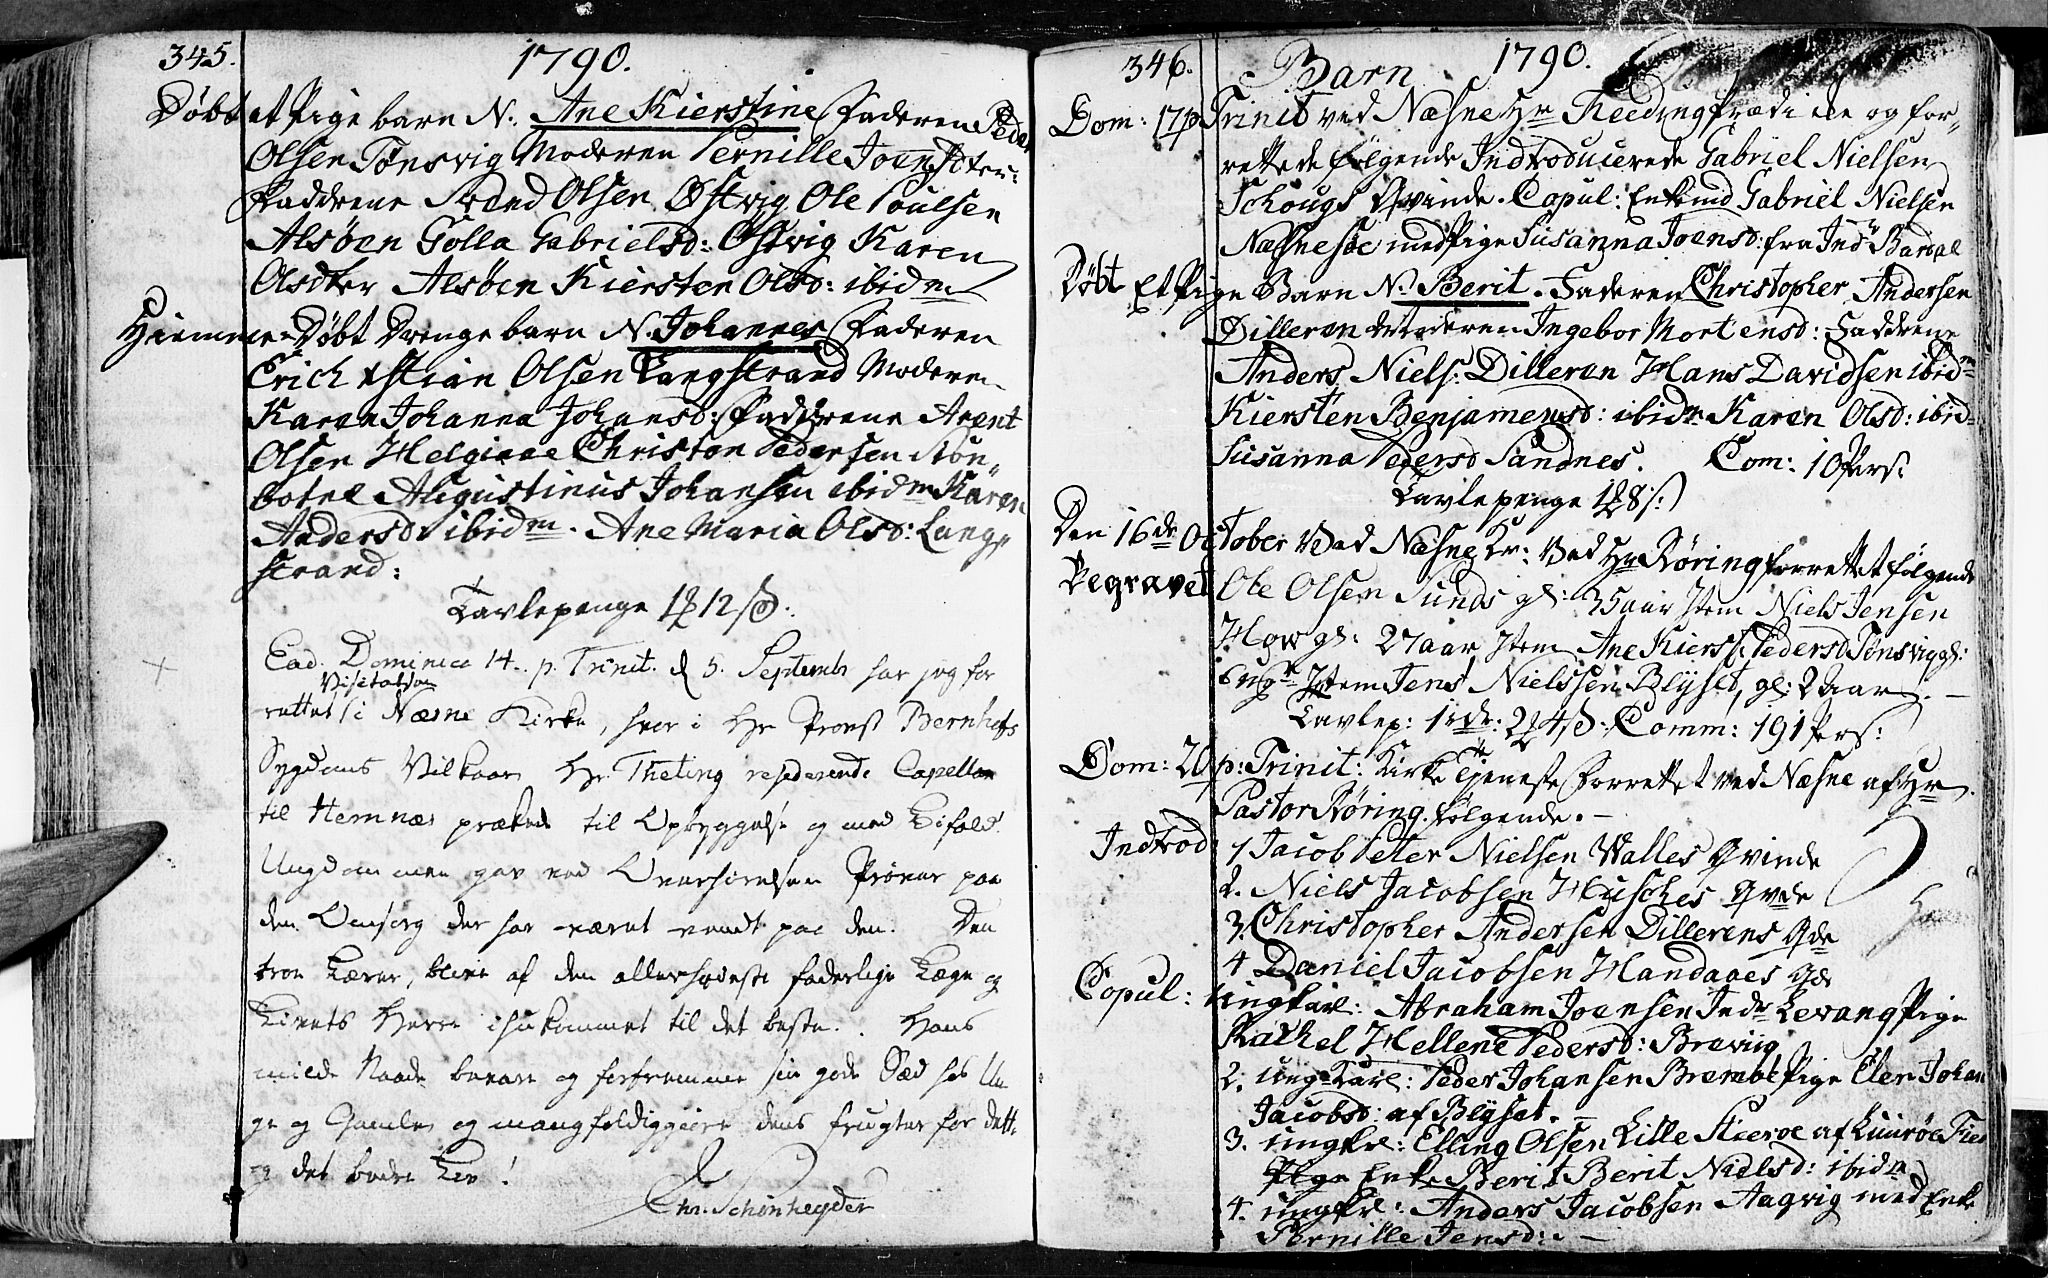 345.
1790.
Døbt et Pige barn N. Ane Kierstine Faderen Peder
Olsen Tønsvig Moderen Pernille Joensdter:
Faddrene Olsen Østvig Ole Poulsen
Alsøen Golla Gabrielsd: Østvig Karen
Olsdter Alsøen Kiersten Olsd: ibidm
Hiemme-Døbt Drenge barn N. Johannes Faderen
Erich xstian Olsen Langstrand Moderen
Karen Johanna Johansd: Faddrene Arent
Olsen Christen Pedersen
Augustinus Johansen ibidm Karen
Andersd ibidm. Ane Maria Olsd: Lang-
strand:
Tavlepenge 12 ß.
Ead. Dominica 14. p. Trinit. d 5. Septembr har jeg for
Visitatsen
rettet i Næsne Kirke, hvor i Hr Provst Bernhofs
Sygdoms Vilkaar Hr. Theting residerende Capellan
til Hemnæs prækede til Opbyggelse og med Bifald.
Ungdommen gav ved Overhørelsen Prøver paa
den Omsorg der har været vendt paa den. Den
troe Lærer, blive af den allerhøieste faderlige Læge og
Livets Herre ihukommet til det beste. Hans
milde Naade bevare og forfremme sin gode Sæd hos Un
ge og Gamle, og mangfoldiggiøre dens frugter for dette
og det bedre Liv!
Chr. Schønheyder
346.
Barn 1790.
Dom: 17 p Trinit ved Næsne Hr Præd og for-
rettede følgende Indtroducerede Gabriel Nielsen
Schougs Qvinde. Copul: Enkemd Gabriel Nielsen
Næsnesøe med Pige Susanna Joensd: fra Indr Bardal
Døbt Et Pige Barn N. Berit. Faderen Christopher Andersen
Dilleren Moderen Ingebor Mortensd: Faddrene
Anders Niels: Dilleren Hans Davidsen ibidm
Kiersten Benjamensd: ibidm Karen Olsd: ibid-
Susanna Pedersd Sandnes. Com: 10 Pers:
Tavlepenge
Den 16de October Ved Næsne Ved Hr Røring forrettet følgende
Begravet Ole Olsen Sunds gl: 35 aar Item Niels Jensen
gl: 27 aar, Item Ane Kierst: Pedersd Tønsvig gl:
6 ugr Item Jens Nielssen Blyset, gl: 2 aar.
Tavlep: 1 rdr. Comm: 191 Pers:
Dom: 20 p: Trinit: Kirke Tjeneste Forrettet ved Næsne af Hr
Pastor Røring. følgende. -
Indtrod: 1 Jacob Peter Nielsen Walles Qvinde
2. Niels Jacobsen Husches Qvde
3. Christopher Andersen Dillerens Qde
4 Daniel Jacobsen Handaaes Qd
Copul: ungkarl: Abraham Joensen Indr Levang Pige
Rachel Hellene Pedersd: Bravig
2. ung-Karl: Peder Johansen Pige Elen Johan
Jacobsd: af Blyset.
3. ungkrl: Elling Olsen Lille af Luurøe
Enke Berit Berit Nielsd: ibidm
4. ungkrl: Anders Jacobsen Aagvig med Enke
Pernille Jensd: -